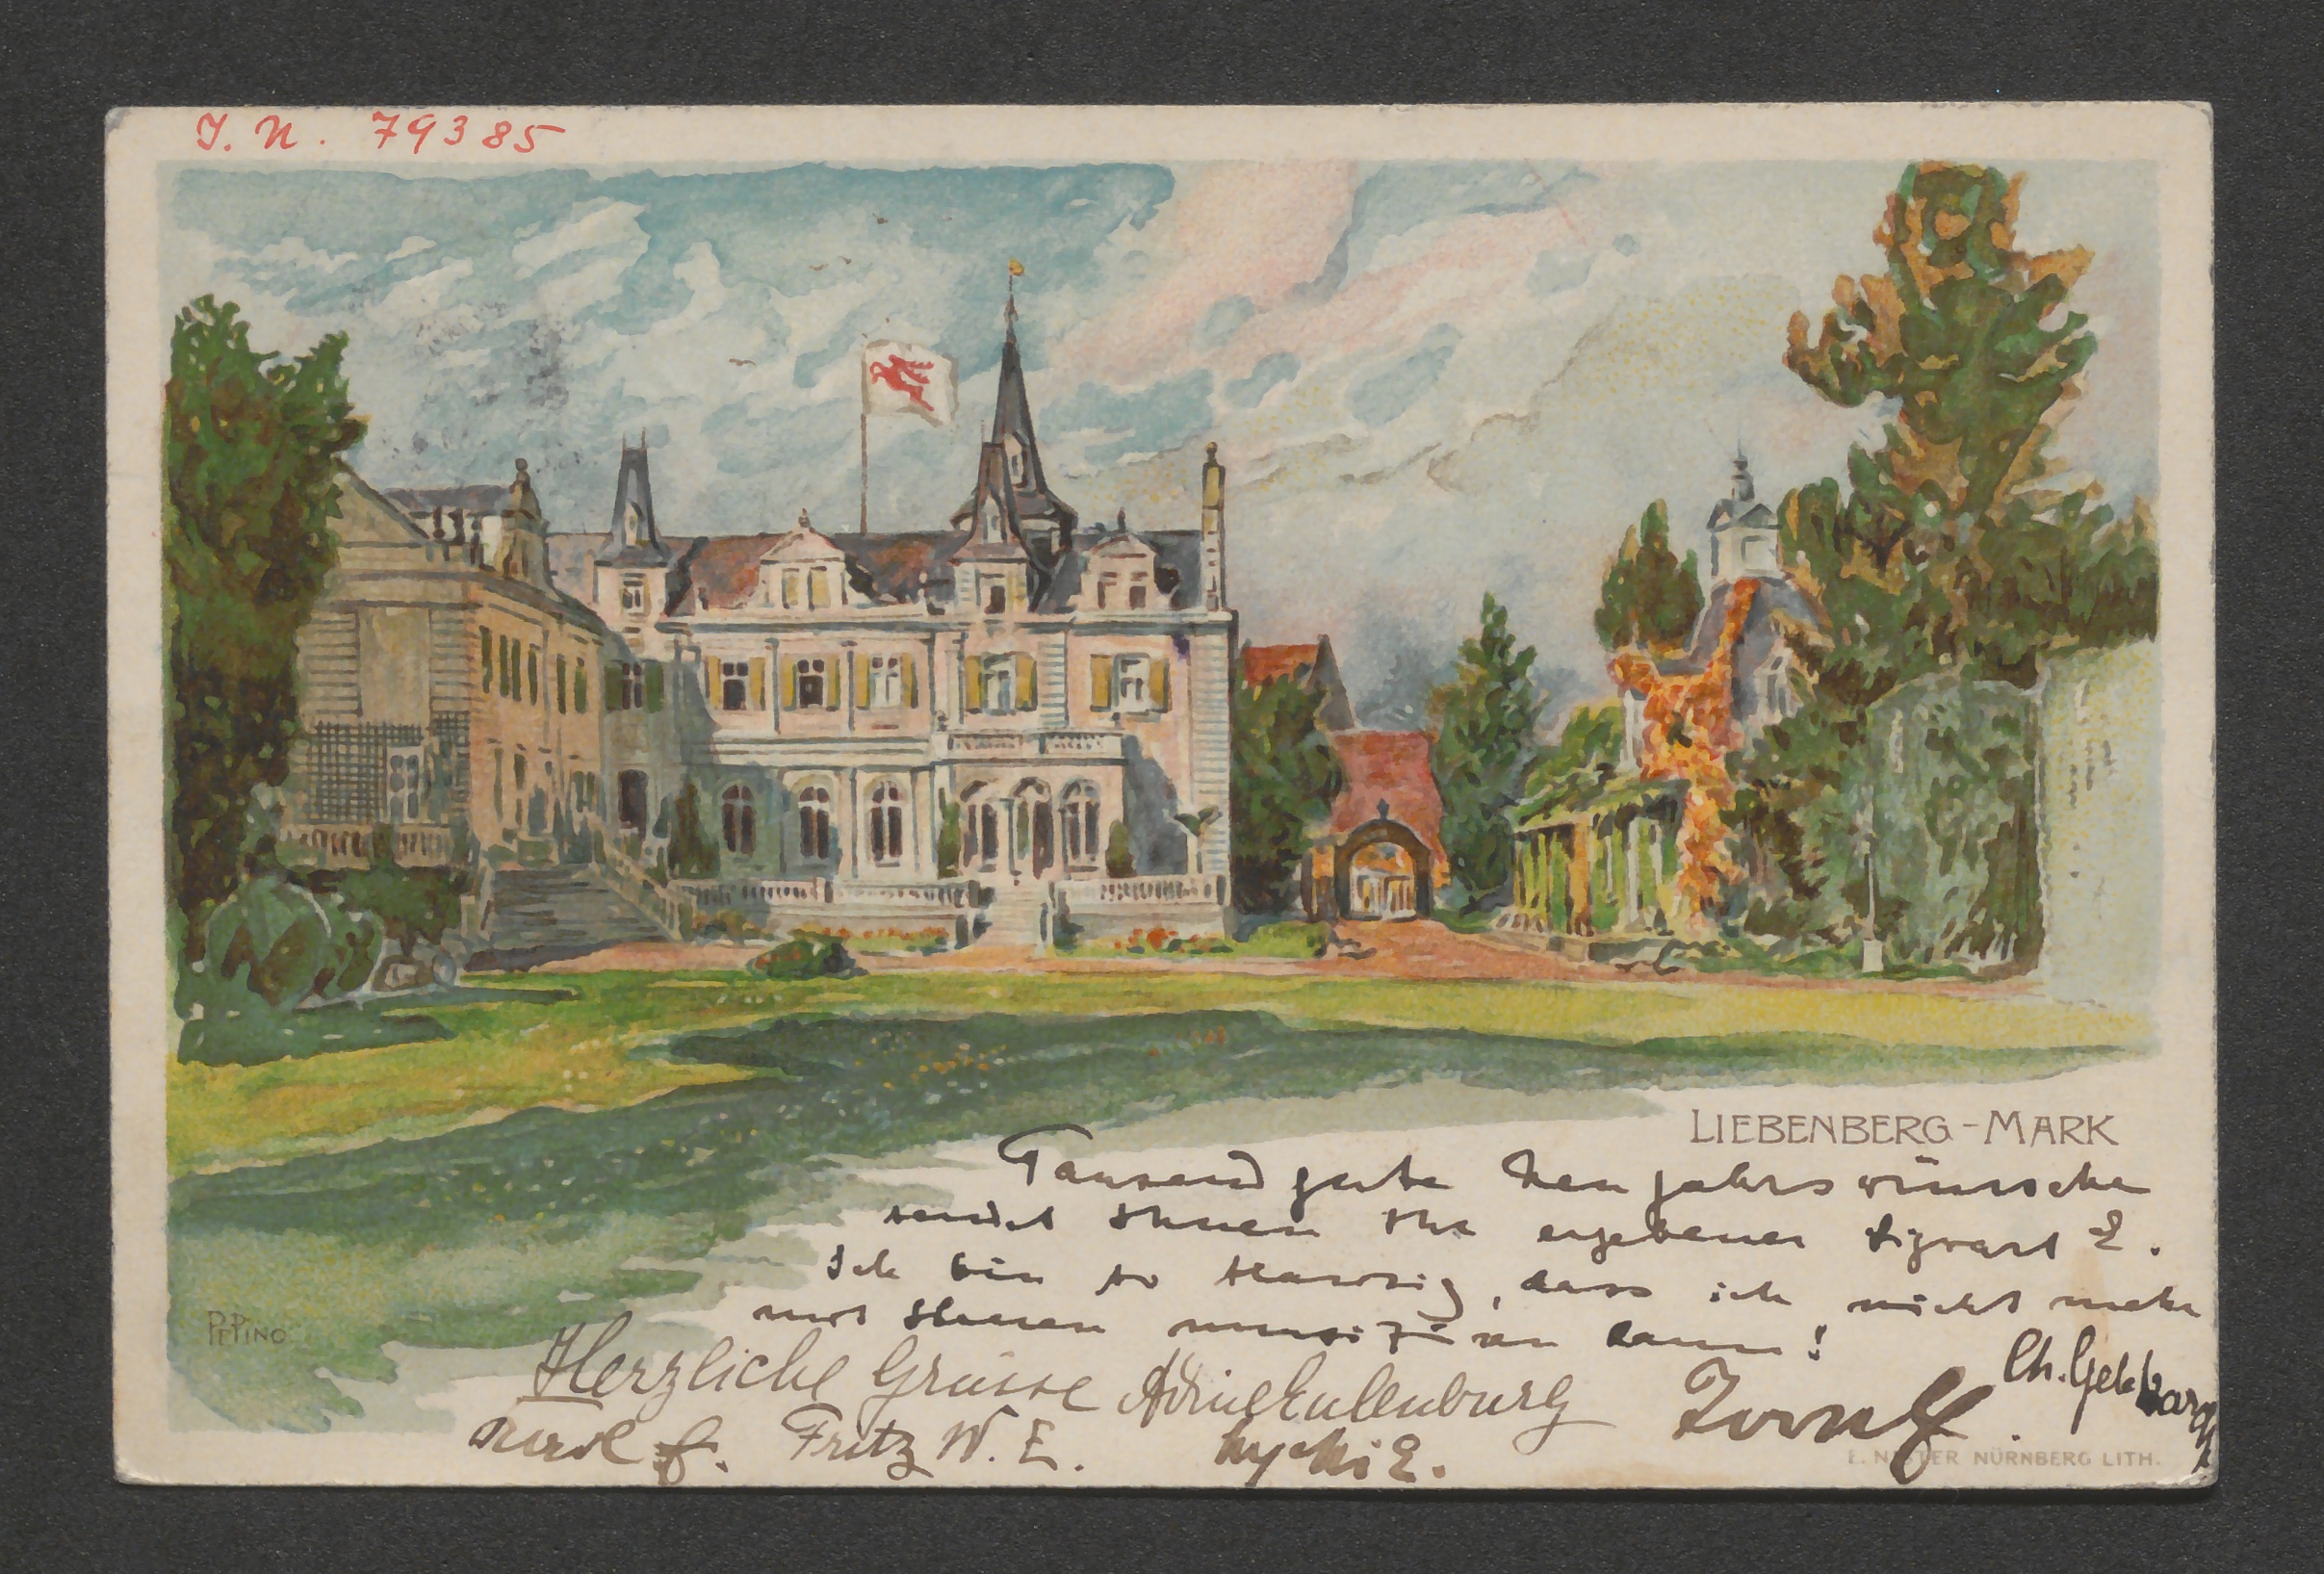 J. N. 79385
LIEBENBERG - MARK
Tausend gute Neujahrswünsche
sendet Ihnen Ihr ergebener Sigwart E.
Ich bin so traurig, dass ich nicht mehr
mit Ihnen musiziren kann!
Herzliche Grüsse Adine Eulenburg
Ch. Gebhardt
Karl E. Fritz W. E.
PEPINO
E. NISTER NÜRNBERG LITH.